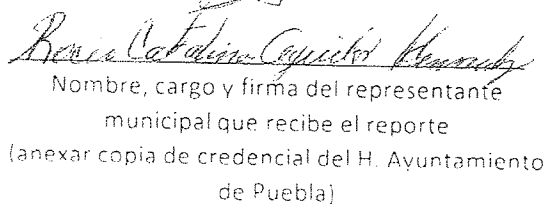 Catalina
Nombre, cargo y firma del representante
municipal que recibe el reporte
(anexar copia de credencial del H. Ayuntamiento
de Puebla)